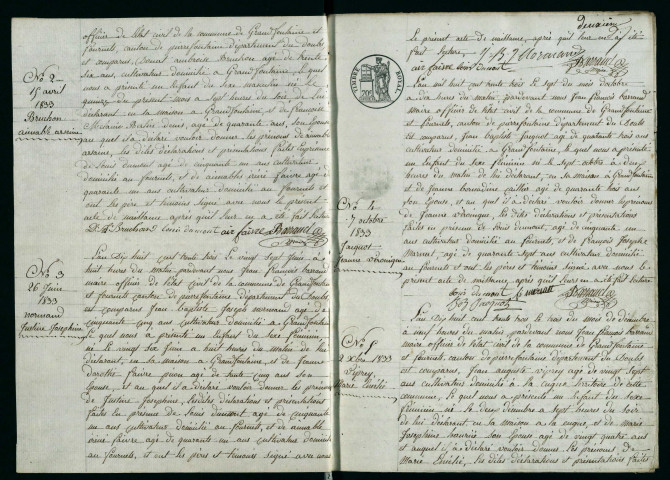 officier de l'état civil de la commune de Grandfontaine et
fournets, canton de pierrefontaine département du doubs
est comparus, Donat ambroise Bruchon agé de trente
six ans cultivateur domicilié à Grandfontaine, le quel
nous a présenté un Enfant du sexe masculin né le
quinze du présent mois à sept heures du soir, de lui
déclarant en sa maison à Grandfontaine et de françoise
son Epouse
au quel il a déclaré vouloir donner les prénoms de aimable
arsène, les dites déclarations et présentations faites En présence
de Louis dumont agé de cinquante un ans cultivateur
domicilié au fournets, et de aimable irené faivre agé de
quarante un ans cultivateur domicilié au fournets et
ont les père et témoins signé avec nous le présent
acte de naissance après qu'il leur en a été fait lecture
D. A. Bruchon Louis dumont air faivre Barraud
N.o 2
15 avril
1833
Bruchon
aimable arsène
L'an Dix huit cent trente trois le vingt sept Juin à
huit heures du matin pardevant nous Jean françois barraud
maire officier de l'état civil de la commune de Grandfontaine
et fournets canton de pierrefontaine département du Doubs
est comparus Jean baptiste Joseph normand agé de
cinquante cinq ans cultivateur domicilié à Grandfontaine
le quel nous a présenté un Enfant du sexe féminin,
né le vingt six Juin à huit heures du matin de lui
déclarant, en sa maison à Grandfontaine, et de Jeanne
dorothé faivre agé de trente cinq ans son
Epouse, et au quel il a déclaré vouloir donner les prénoms
de Justine Josephine, les dites déclarations et présentations
faites en présence de Louis dumont agé de cinquante
un ans cultivateur domicilié au fournets, et de aimable
irené faivre agé de quarante un ans cultivateur domicilié
au fournets, et ont les père et témoins signé avec nous
N.o 3
26 Juin
1833
normand
Justine Josephine
deuxième
le présent acte de naissance, après qu'il leur en a été
fait lecture. J. B. J. Normand
air faivre Louis dumont Barraud
TIMBRE ROYAL
L'an mil huit cent trente trois le sept du mois d'octobre
à dix heures du matin, pardevant nous Jean françois barraud
maire officier de l'état civil de la commune de Grandfontaine
et fournets, canton de pierrefontaine département du Doubs
est comparus, Jean baptiste Jacquot agé de quarante trois ans
cultivateur domicilié à Grandfontaine, le quel nous a présenté
un Enfant du sexe féminin né le sept octobre à deux
heures du matin de lui déclarant, en sa maison à Grandfontaine
et de Jeanne agé de quarante trois ans
son Epouse, et au quel il a déclaré vouloir donner les prénoms
de Jeanne véronique, les dites déclarations et présentations
faites en présence de Louis dumont, agé de cinquante un
ans cultivateur domicilié au fournets, et de françois Joseph
agé de quarante sept ans cultivateur domicilié
au fournets et ont les père et témoins signé avec nous le
présent acte de naissance, après qu'il leur en a été fait lecture
Louis dumont Barraud
J B Jacquot
N.o 4
7 octobre
1833
Jacquot
Jeanne véronique
L'an Dix huit cent trente trois le trois du mois de décembre
à neuf heures du matin, pardevant nous Jean françois barraud
maire officier de l'état civil de la commune de Grandfontaine
et fournets, canton de pierrefontaine département du Doubs
est comparus, Jean auguste agé de vingt sept
ans cultivateur domicilié à la territoire de cette
commune, le quel nous a présenté un Enfant du sexe
féminin né le deux décembre à sept heures du soir
de lui déclarant en sa maison à la et de marie
Josephine son Epouse agé de vingt quatre ans
et auquel il a déclaré vouloir donner les prénoms de
Marie Emélie, les dites déclarations et présentations faites
N.o 5
2 xbre 1833
Marie Emélie